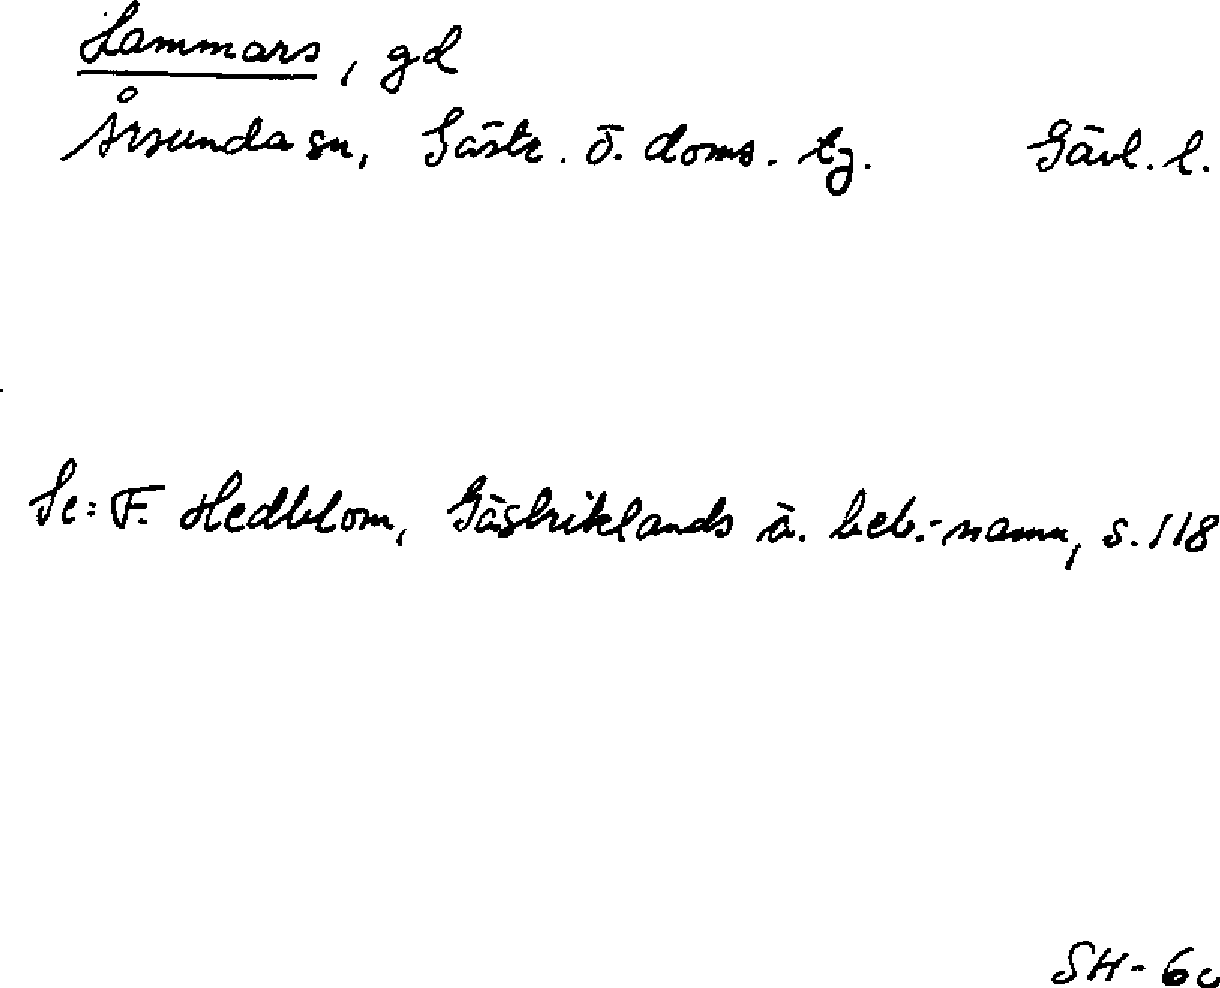 Lammars, gd
Årsunda sn, Gästr. ö. doms. tg. Gävl. l.
Se: F. Hedblom, Gästriklands ä. beb.-namn, s. 118
SH-60